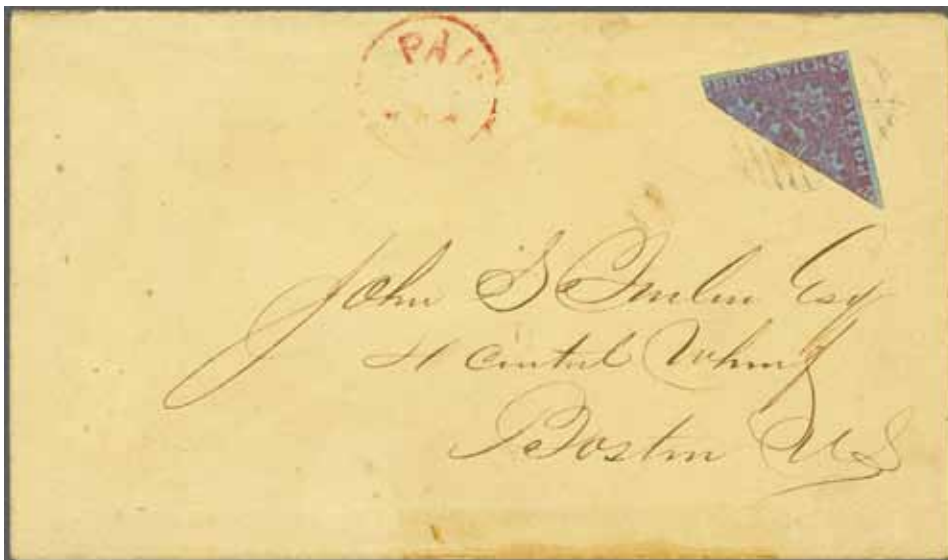 PAI
BRUNSWICK
POSTAGE
John S Emlen Esq
Central Wharf
Boston US